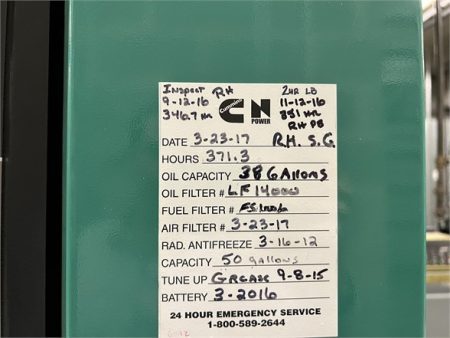 Inspect RH
9-12-16
346.7 HR
Cummins
N
POWER
2HR LB
11-12-16
351 HR
RH PB
DATE 3-23-17 RH. S.G.
HOURS 371.3
OIL CAPACITY 38 GAllons
OIL FILTER # LF 14000
FUEL FILTER #
AIR FILTER # 3-23-17
RAD. ANTIFREEZE 3-16-12
CAPACITY 50 gallons
TUNE UP Grease 9-8-15
BATTERY 3-2016
24 HOUR EMERGENCY SERVICE
1-800-589-2644